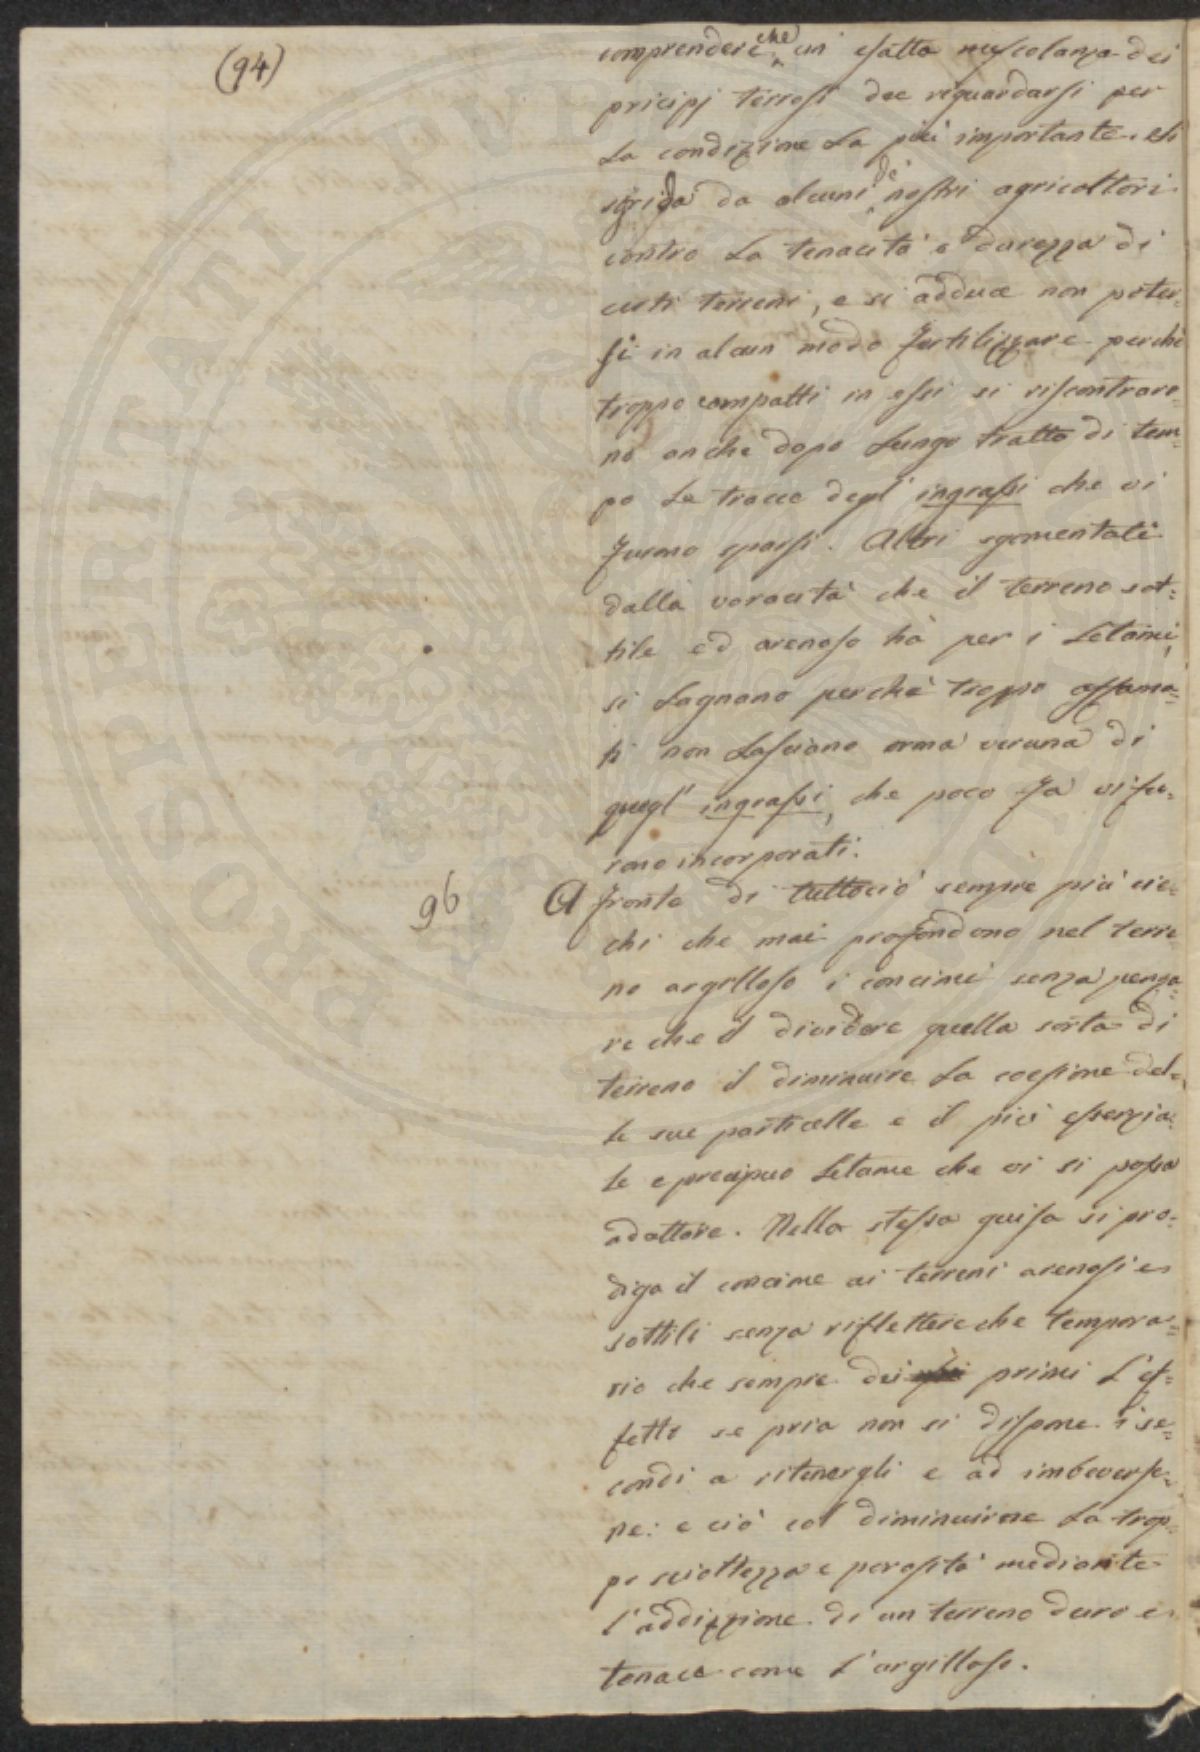 (94)
comprendere che un' esatta mescolanza dei
pricipj terrosi dee riguardarsi per
la condizione la più importante. Si
sgrida da alcuni de' nostri agricoltori
contro la tenacità e durezza di
certi terreni, e si adduce non poter=
si in alcun modo fertilizzare perchè
troppo compatti in essi si riscontraro=
no anche dopo lungo tratto di tem=
po le tracce degl' ingrassi che vi
furono sparsi. Altri sgomentati
dalla voracità che il terreno sot=
tile ed arenoso hà per i letami,
si lagnano perchè troppo affama=
ti non lasciano orma veruna di
quegl' ingrassi, che poco fà vi fu=
rono incorporati.
96 A fronte di tuttociò sempre più cie=
chi che mai profondono nel terre
no argilloso i concimi senza pensa=
re che il dividere quella sorta di
terreno il diminuire la coesione del=
le sue particelle e il più essenzia=
le e precipuo letame che vi si possa
adattare. Nella stessa guisa si pro=
diga il concime ai terreni arenosi e
sottili senza riflettere che tempora=
rio che sempre dei primi l'ef=
fetto se pria non si dispone i se=
condi a ritenergli e ad imbeverse=
ne: e ciò col diminuirne la trop=
pa sciottezza e porosità mediante
l'addizzione di un terreno duro e
tenace come l'argilloso.
PROSPERITATI PVBLICAE